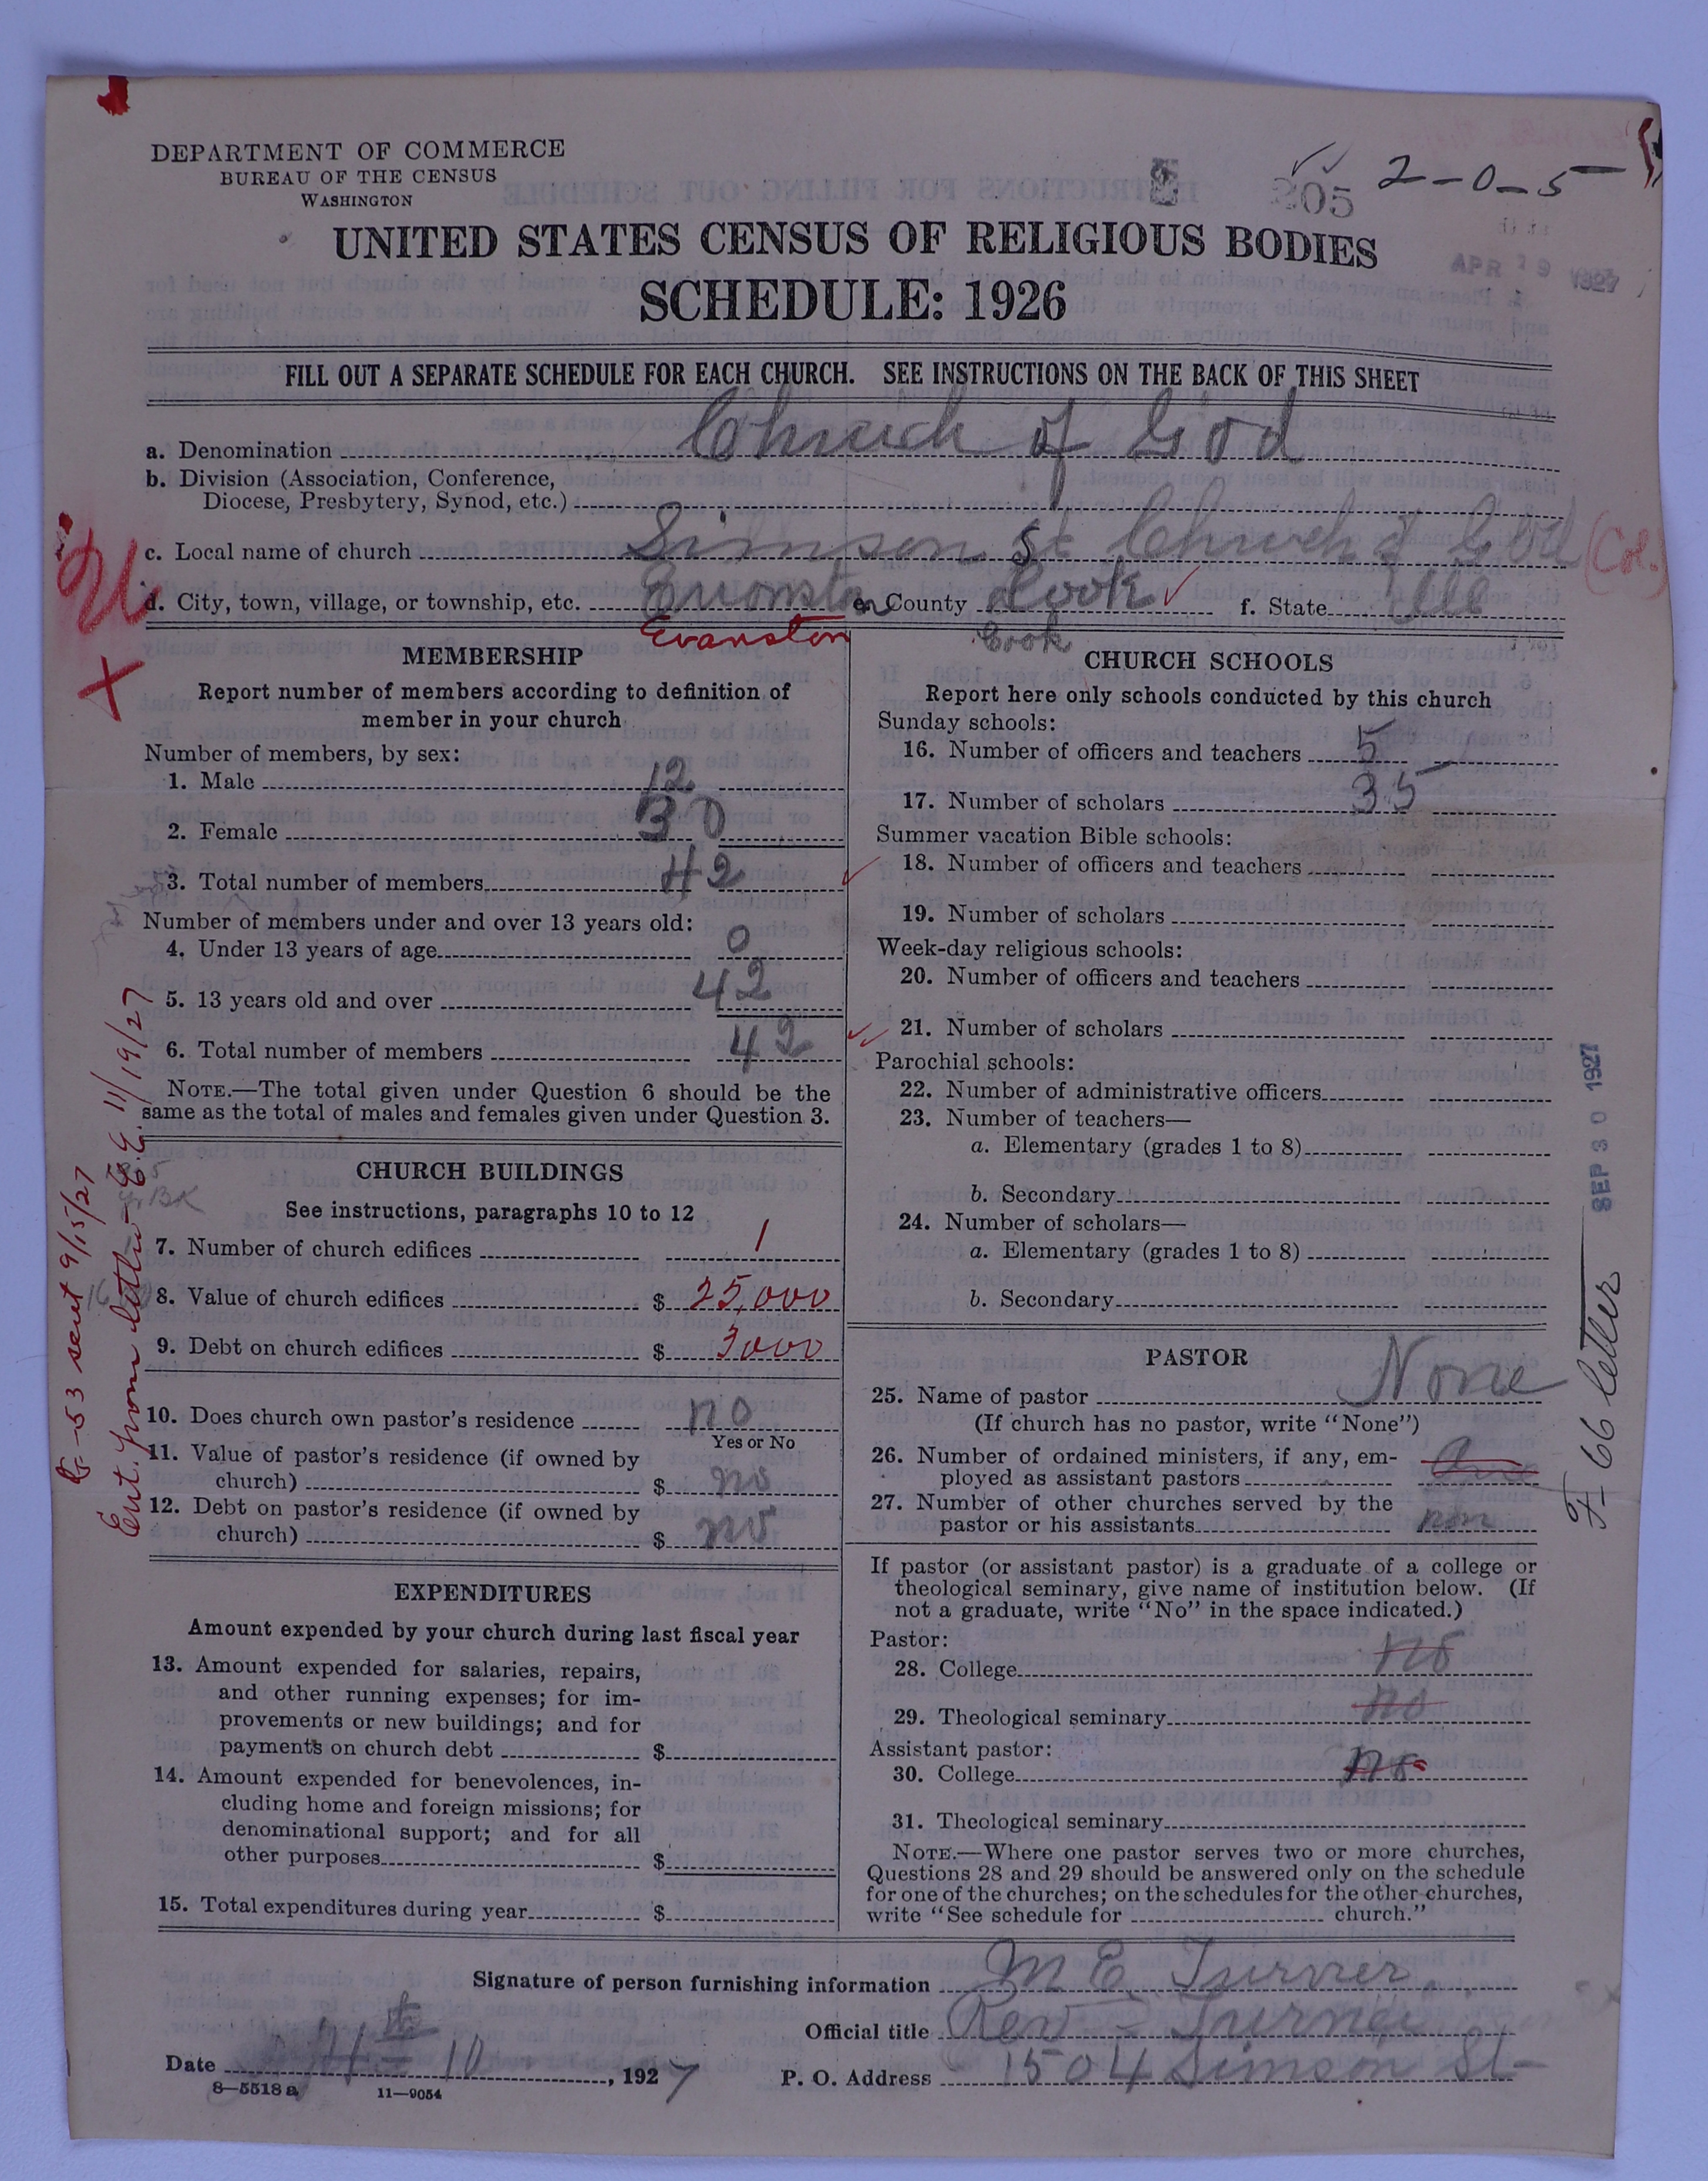 DEPARTMENT OF COMMERCE
BUREAU OF THE CENSUS
WASHINGTON
205 2-0-5-
UNITED STATES CENSUS OF RELIGIOUS BODIES
APR 19 1927
SCHEDULE: 1926
FILL OUT A SEPARATE SCHEDULE FOR EACH CHURCH. SEE INSTRUCTIONS ON THE BACK OF THIS SHEET
a. Denomination Church of God
b. Division (Association, Conference,
Diocese, Presbytery, Synod, etc.)
c. Local name of church Simson St Church of God (Col.)
d. City, town, village, or township, etc. Evionston e. County Cook f. State Ill
Evanston Cook
MEMBERSHIP
Report number of members according to definition of
member in your church
Number of members, by sex:
1. Male 12
2. Female 30
3. Total number of members 42
Number of members under and over 13 years old:
4. Under 13 years of age 0
5. 13 years old and over 42
6. Total number of members 42
NOTE.—The total given under Question 6 should be the
same as the total of males and females given under Question 3.
CHURCH BUILDINGS
See instructions, paragraphs 10 to 12
7. Number of church edifices 1
8. Value of church edifices $ 25,000
9. Debt on church edifices $ 3000
10. Does church own pastor's residence no
Yes or No
11. Value of pastor's residence (if owned by
church) $ no
12. Debt on pastor's residence (if owned by
church) $ no
EXPENDITURES
Amount expended by your church during last fiscal year
13. Amount expended for salaries, repairs,
and other running expenses; for im-
provements or new buildings; and for
payments on church debt $
14. Amount expended for benevolences, in-
cluding home and foreign missions; for
denominational support; and for all
other purposes $
15. Total expenditures during year $
CHURCH SCHOOLS
Report here only schools conducted by this church
Sunday schools:
16. Number of officers and teachers 5
17. Number of scholars 35
Summer vacation Bible schools:
18. Number of officers and teachers
19. Number of scholars
Week-day religious schools:
20. Number of officers and teachers
21. Number of scholars
Parochial schools:
22. Number of administrative officers
23. Number of teachers—
a. Elementary (grades 1 to 8)
b. Secondary
24. Number of scholars—
a. Elementary (grades 1 to 8)
b. Secondary
PASTOR
25. Name of pastor None
(If church has no pastor, write "None")
26. Number of ordained ministers, if any, em-
ployed as assistant pastors
27. Number of other churches served by the
pastor or his assistants non
If pastor (or assistant pastor) is a graduate of a college or
theological seminary, give name of institution below. (If
not a graduate, write "No" in the space indicated.)
Pastor:
28. College no
29. Theological seminary no
Assistant pastor:
30. College no
31. Theological seminary
NOTE.—Where one pastor serves two or more churches,
Questions 28 and 29 should be answered only on the schedule
for one of the churches; on the schedules for the other churches,
write "See schedule for church."
Signature of person furnishing information M E Turner
Official title Rev - Turner
Date 10, 1927 P. O. Address 1504 Simson St-
8-5518 a 11-9054
G-53 sent 9/15/27
Ent. from letter E.E. 11/19/27
SEP 30 1927
F-66 letter